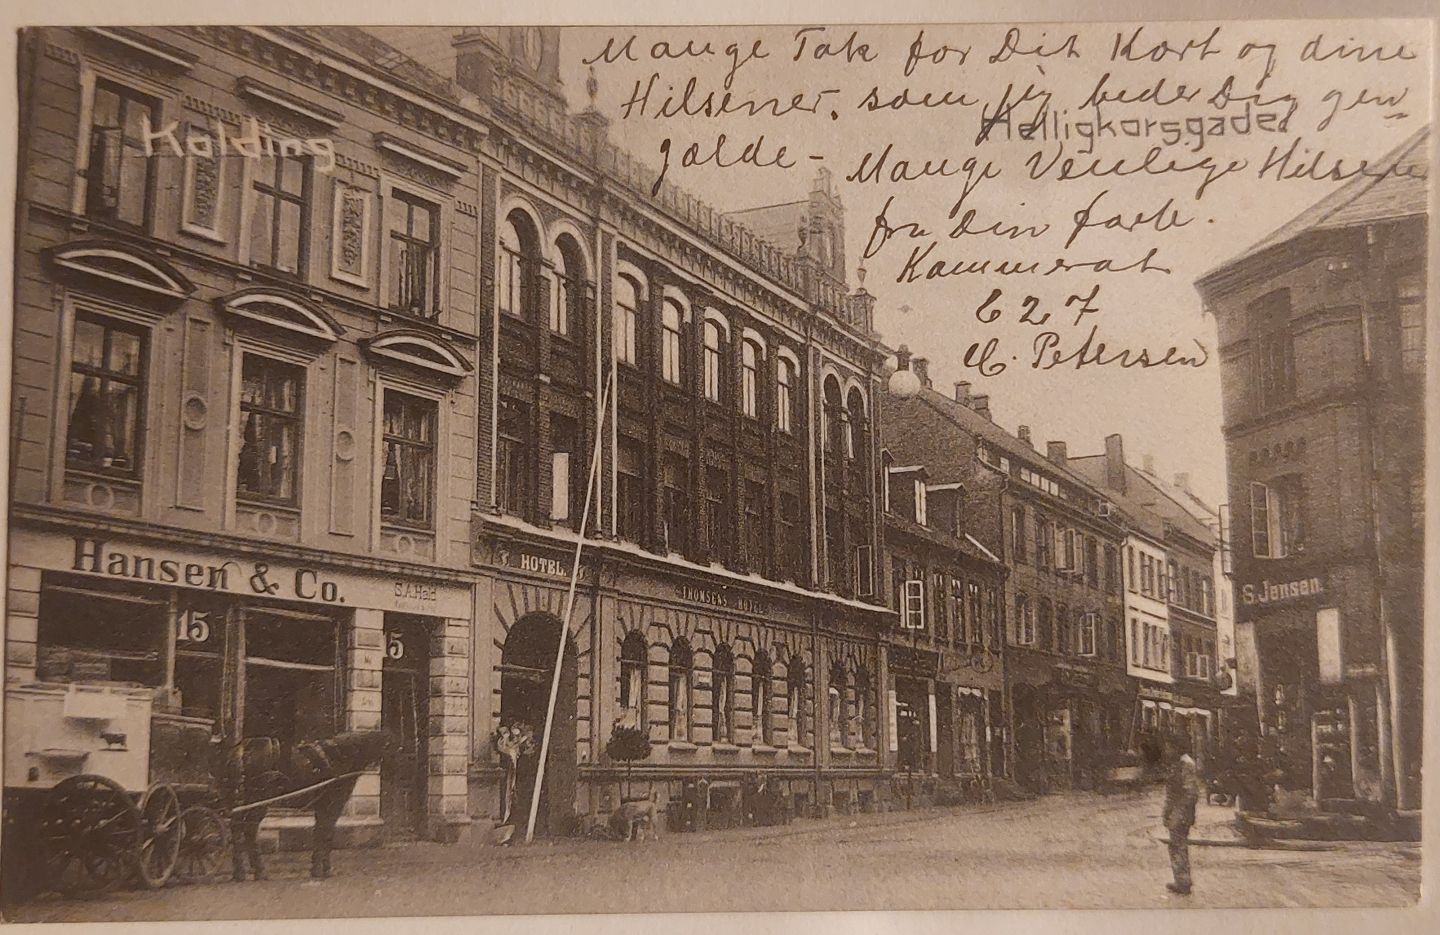 Mange Tak for Dit Kort og dine
Hilsener, som jeg beder Dig gen=
gælde - Mange Venlige Hilsener
fra Din fork.
Kammerat
E 27
C. Petersen
Kolding
Helligkorsgade
Hansen & Co.
S.A. Hald
15
15
HOTEL.
THOMSENS HOTEL
S. Jensen